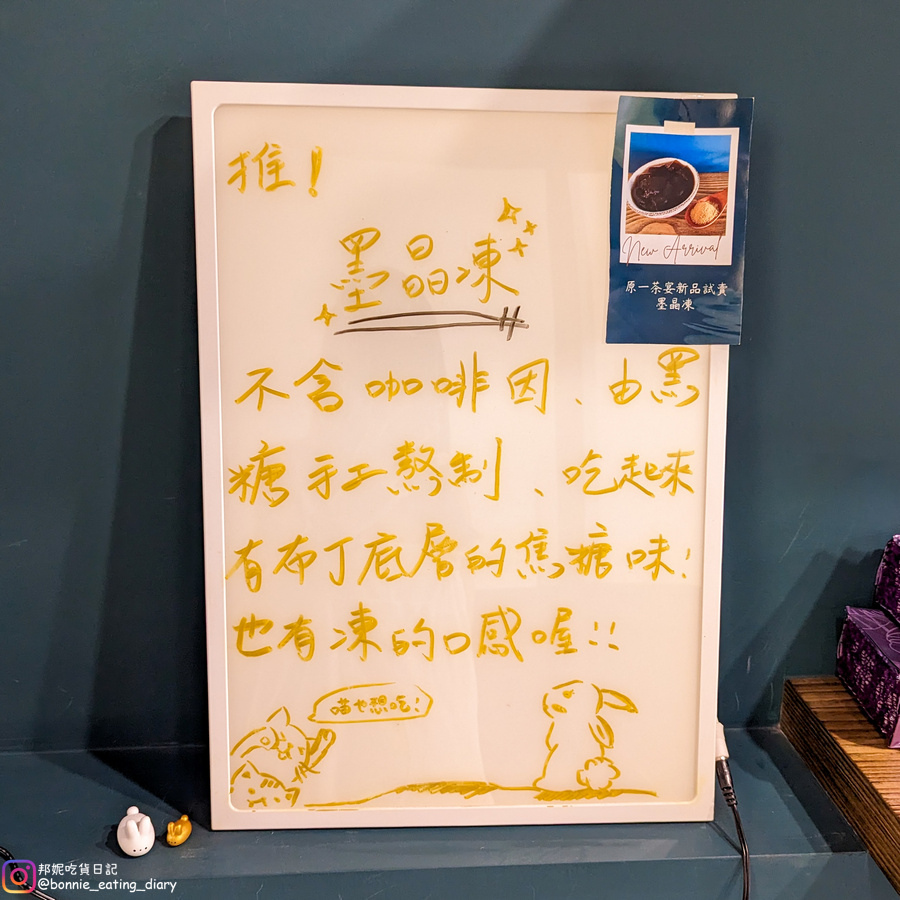 推!
墨晶凍
不含咖啡因、由黑
糖手工熬制、吃起來
有布丁底層的焦糖味!
也有凍的口感喔!!
喵也想吃!
New Arrival
原一茶宴新品試賣
墨晶凍
邦妮吃貨日記
@bonnie_eating_diary